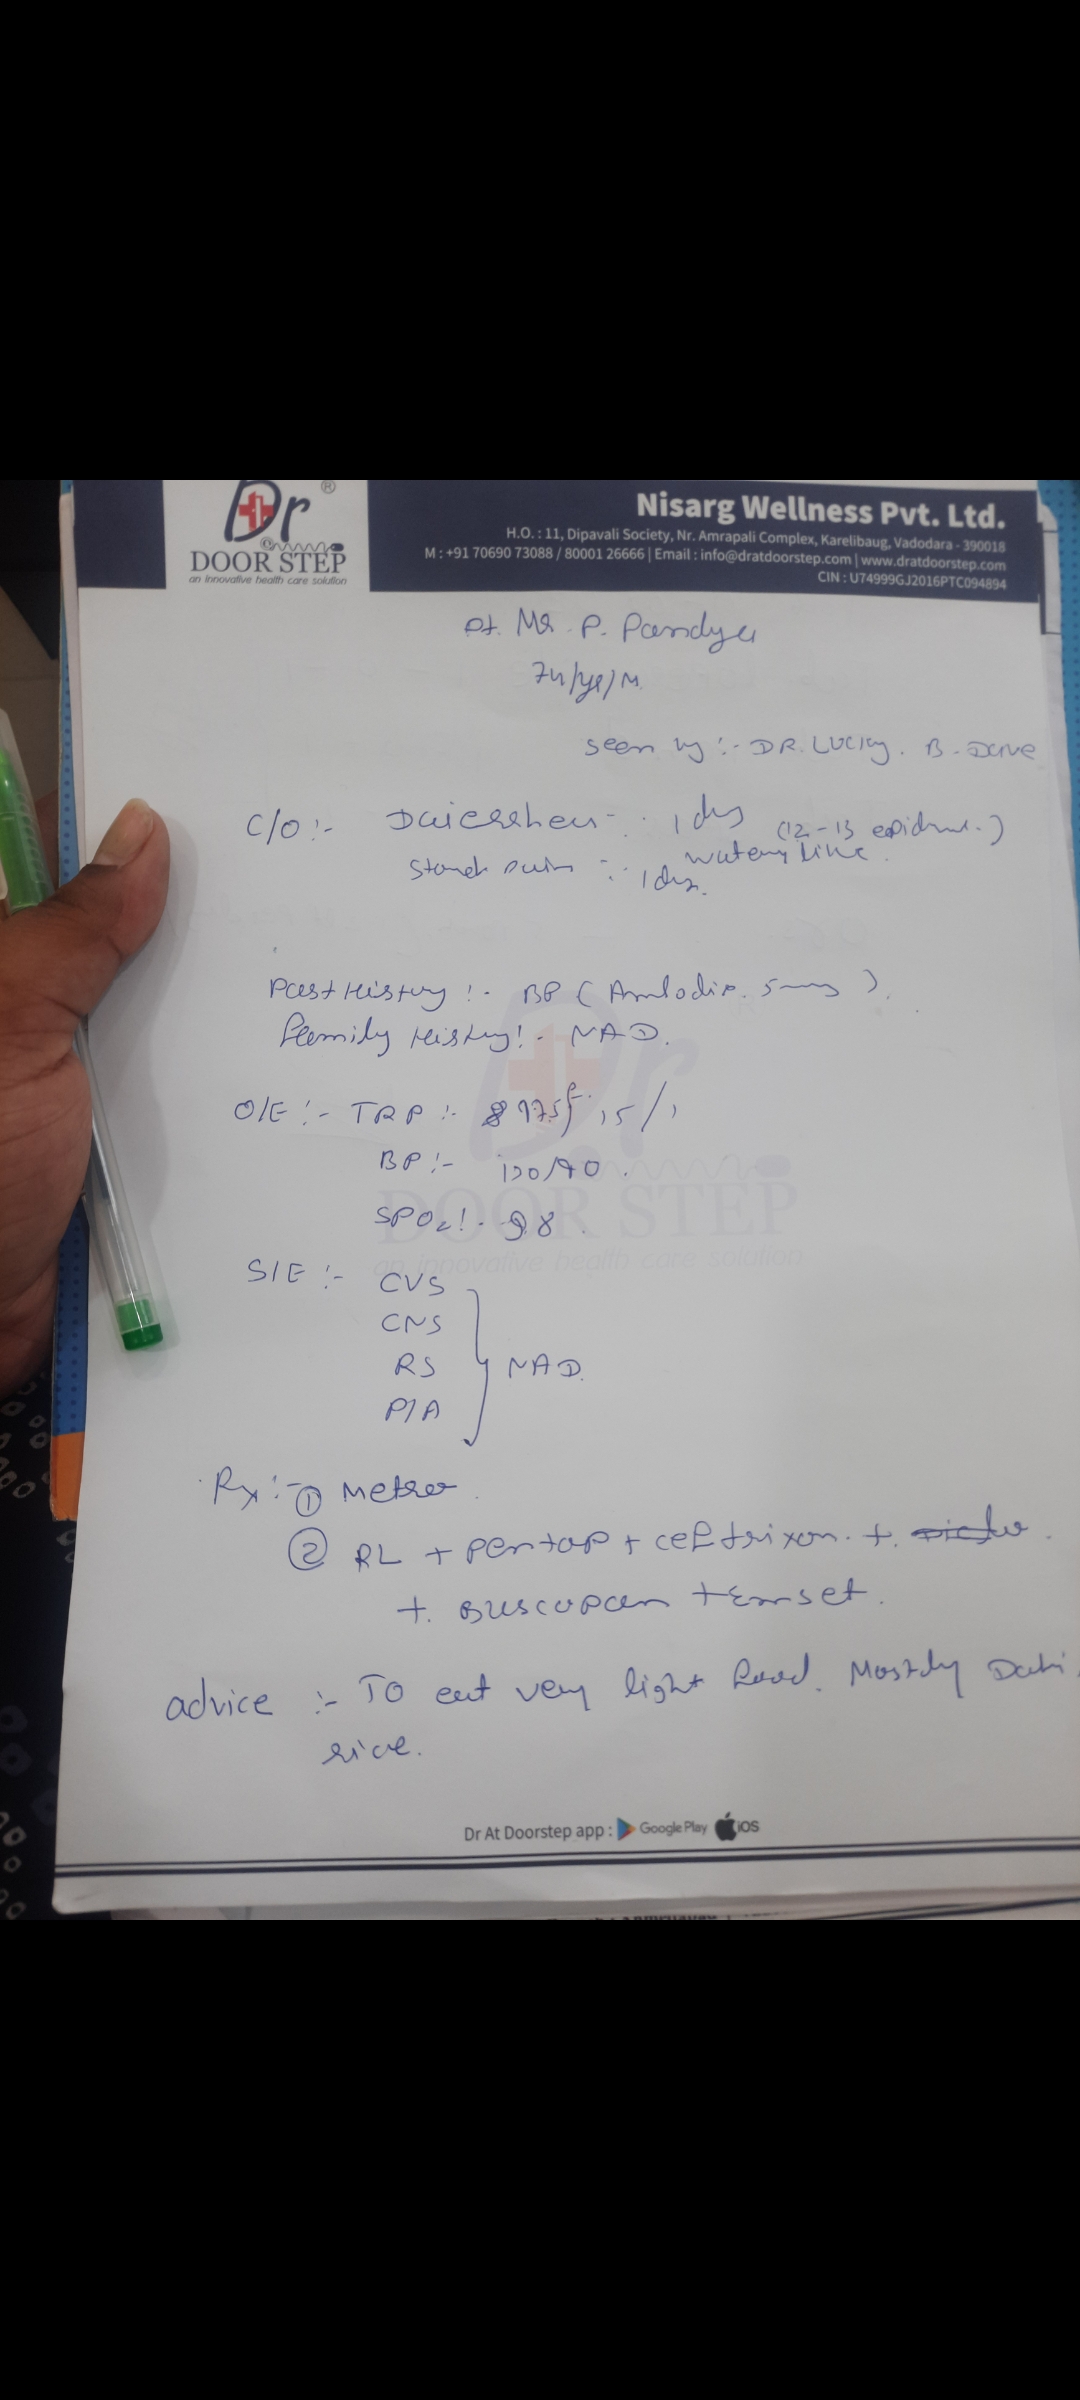 Dr
®
@
DOOR STEP
an innovative health care solution
Nisarg Wellness Pvt. Ltd.
H.O. : 11, Dipavali Society, Nr. Amrapali Complex, Karelibaug, Vadodara - 390018
M : +91 70690 73088 / 80001 26666 | Email : info@dratdoorstep.com | www.dratdoorstep.com
CIN : U74999GJ2016PTC094894
Pt. Mr. P. Pandya
/M
seen by :- DR. Lucky. B. Dave
C/O :- 1 day (12-13
watery like
pain :- 1 day.
Past History :- BP (Amlodip. 5mg).
Family History :- NAD.
O/E :- TRP :-
BP :-
SPO2 :- 98.
S/E :- CVS
CNS
RS
NAD.
P/A
Rx :- ① Metro.
② RL + pentap + ceftrixon. +
+ Buscopan + emset.
advice :- To eat very light food. Mostly Dahi.
rice.
Dr
DOOR STEP
an innovative health care solution
Dr At Doorstep app : Google Play iOS